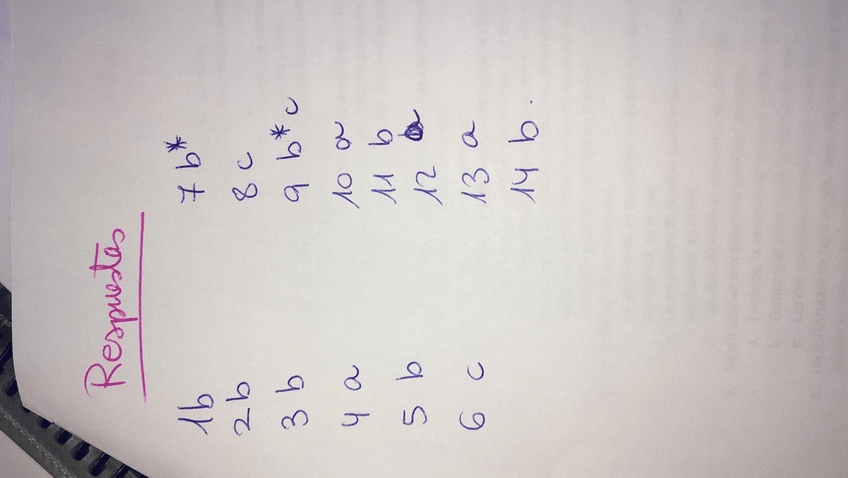 Respuestas
1b
2b
3 b
4 a
5 b
6 c
7 b*
8 c
9 b* c
10 a
11 b
12 a
13 a
14 b.